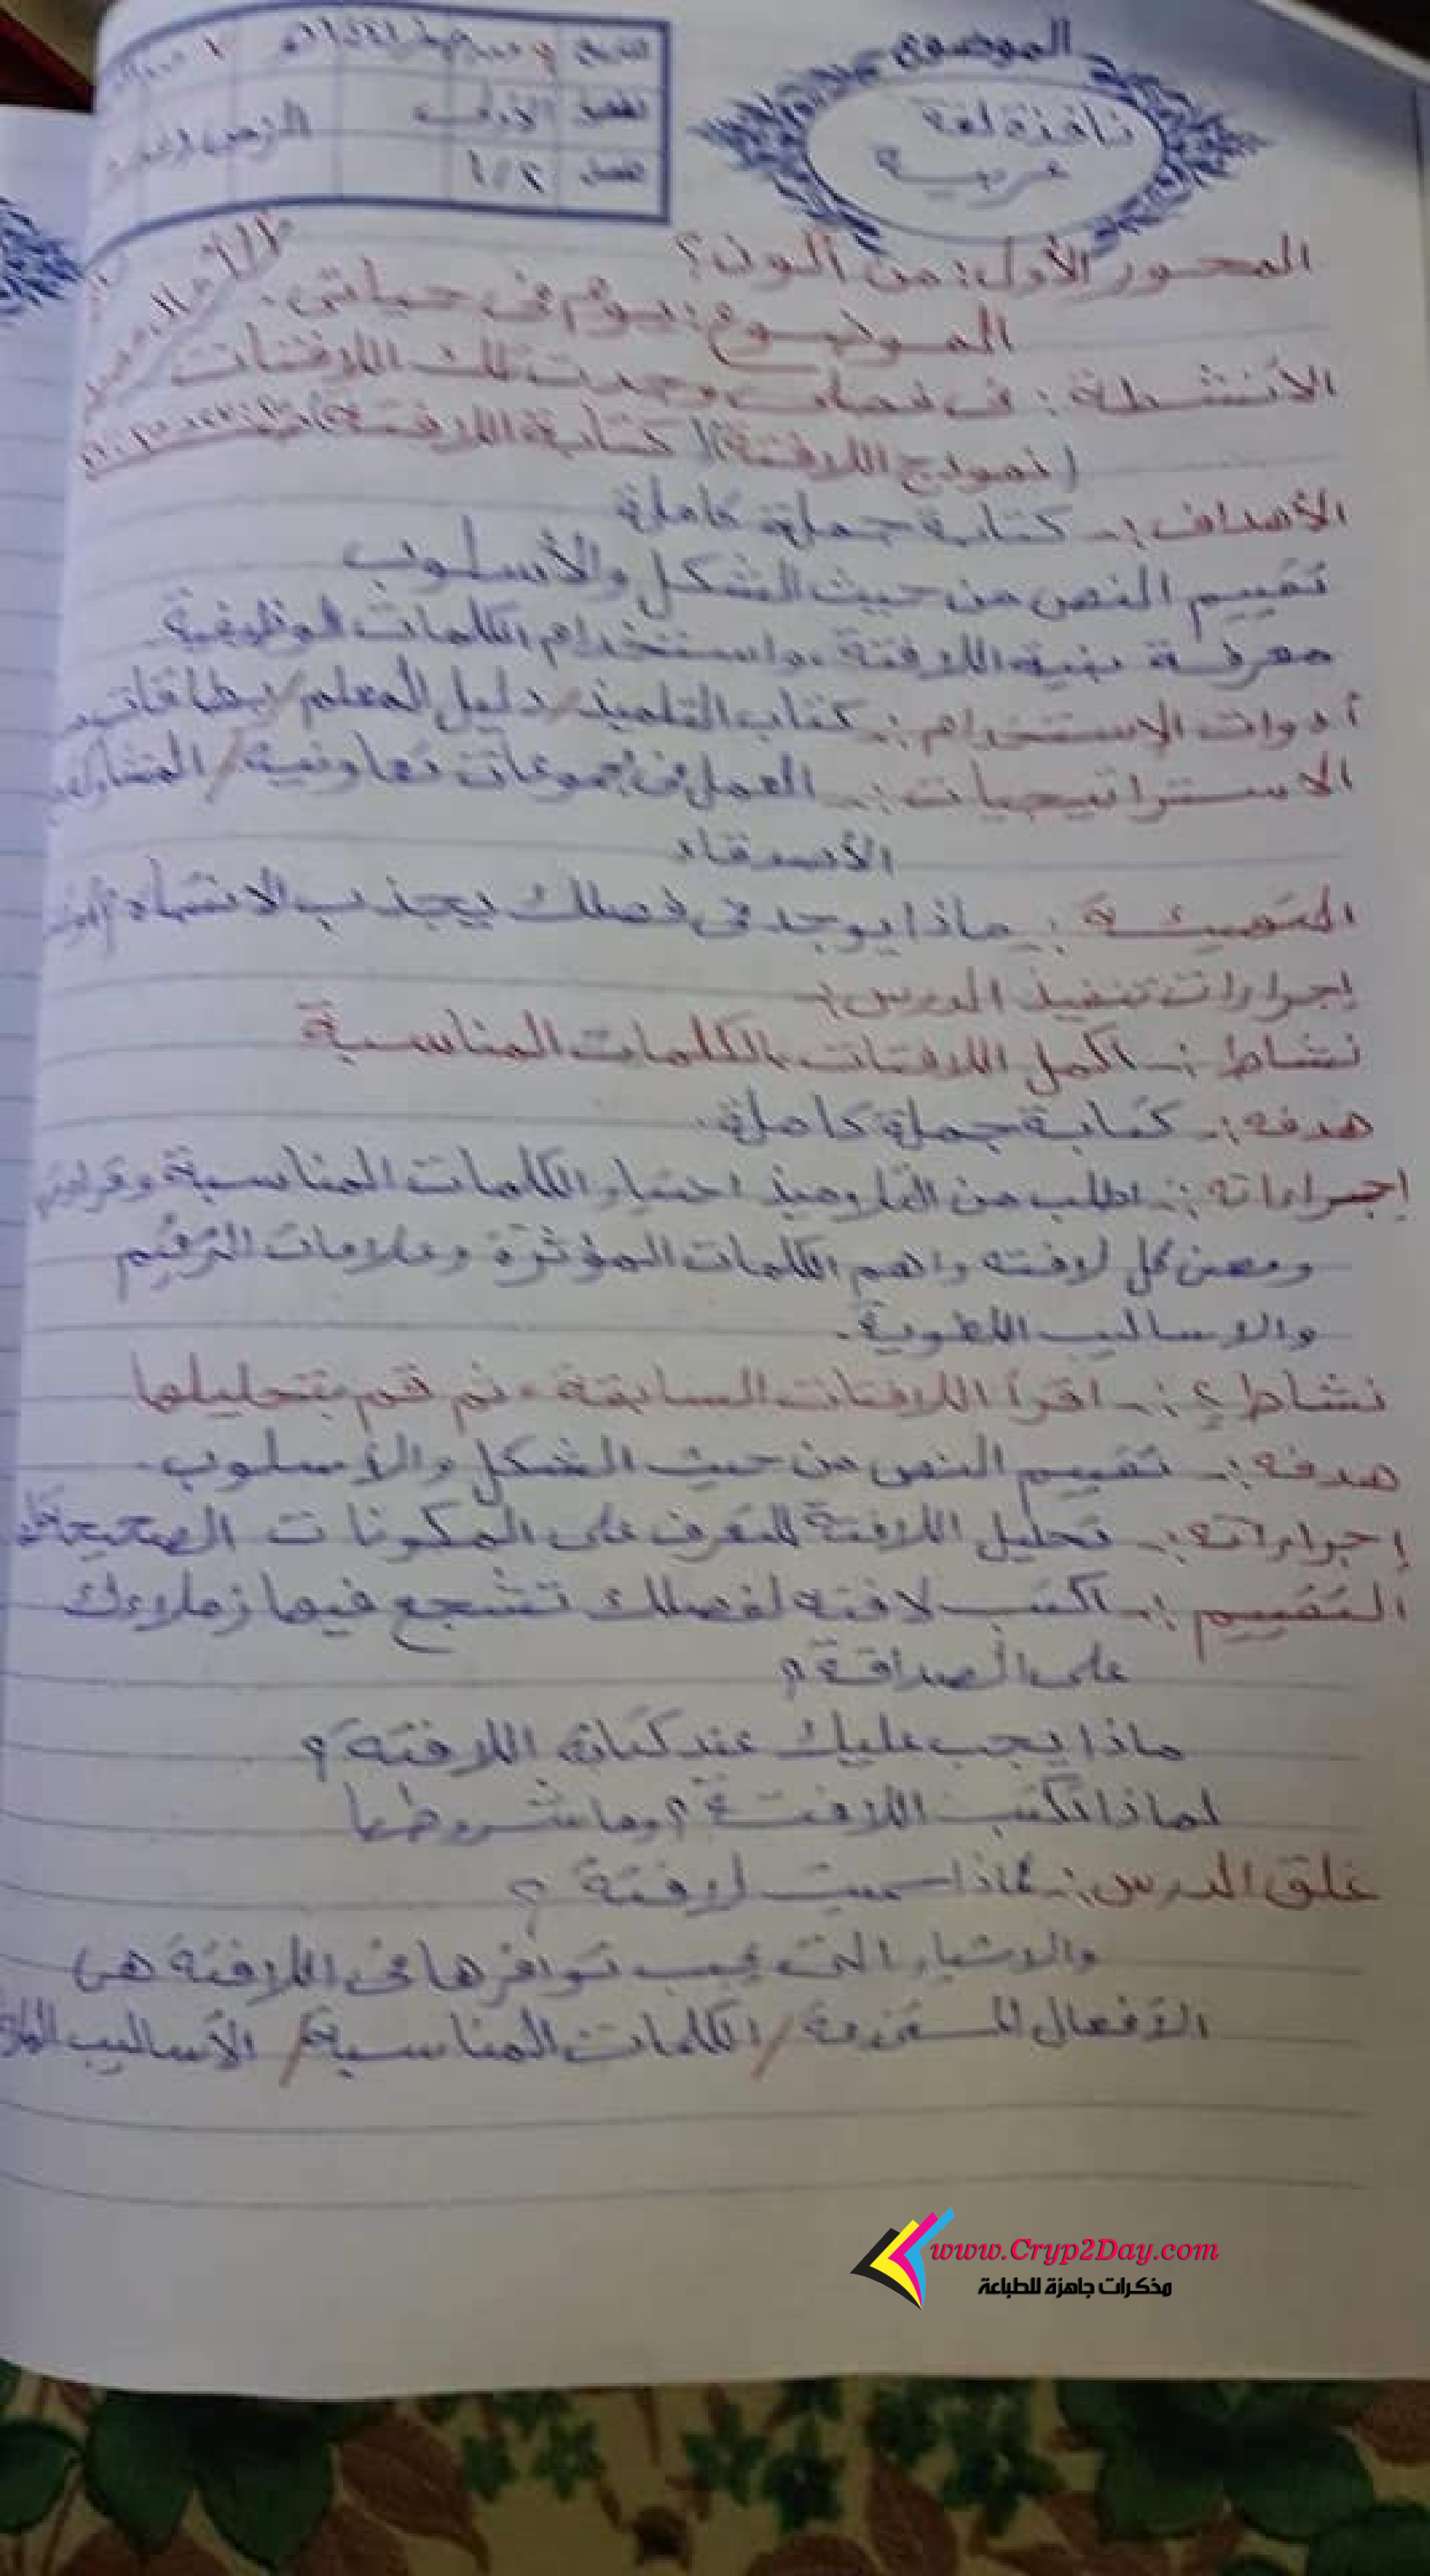 الموضوع
نافذة لغة
عربية
١/٢
المحور الأول: من أكون؟
الموضوع: يوم فى حياتى.
الأنشطة: فى فصلى وجدت تلك اللافتات
(نموذج اللافتة)(كتابة اللافتة)
الأهداف:- كتابة جملة كاملة
تقييم النص من حيث الشكل والأسلوب
معرفة بنية اللافتة، واستخدام الكلمات الوظيفية.
أدوات الاستخدام:- كتاب التلميذ/دليل المعلم/بطاقات
الاستراتيجيات:- العمل فى مجموعات تعاونية/
التهيئة:- ماذا يوجد فى فصلك يجذب الانتباه؟
إجراءات تنفيذ الدرس:-
نشاط:- أكمل اللافتات بالكلمات المناسبة
هدفه:- كتابة جملة كاملة.
إجراءاته:- اطلب من التلاميذ اختيار الكلمات المناسبة
ومعنى كل لافته واهم الكلمات المؤثرة وعلامات الترقيم
والاساليب اللغوية.
نشاط ٢:- اقرأ اللافتات السابقة، ثم قم بتحليلها
هدفه:- تقييم النص من حيث الشكل والأسلوب.
إجراءاته:- تحليل اللافتة للتعرف على المكونات الصحيحة
التقييم:- اكتب لافته لفصلك تشجع فيها زملاءك
على الصداقة؟
ماذا يجب عليك عند كتابة اللافتة؟
لماذا نكتب اللافتة؟ وما شروطها
غلق الدرس:- لماذا سميت لافتة؟
والاشياء التى يجب توافرها فى اللافتة هى
الأفعال / الكلمات المناسبة / الأساليب
www.Cryp2Day.com
مذكرات جاهزة للطباعة